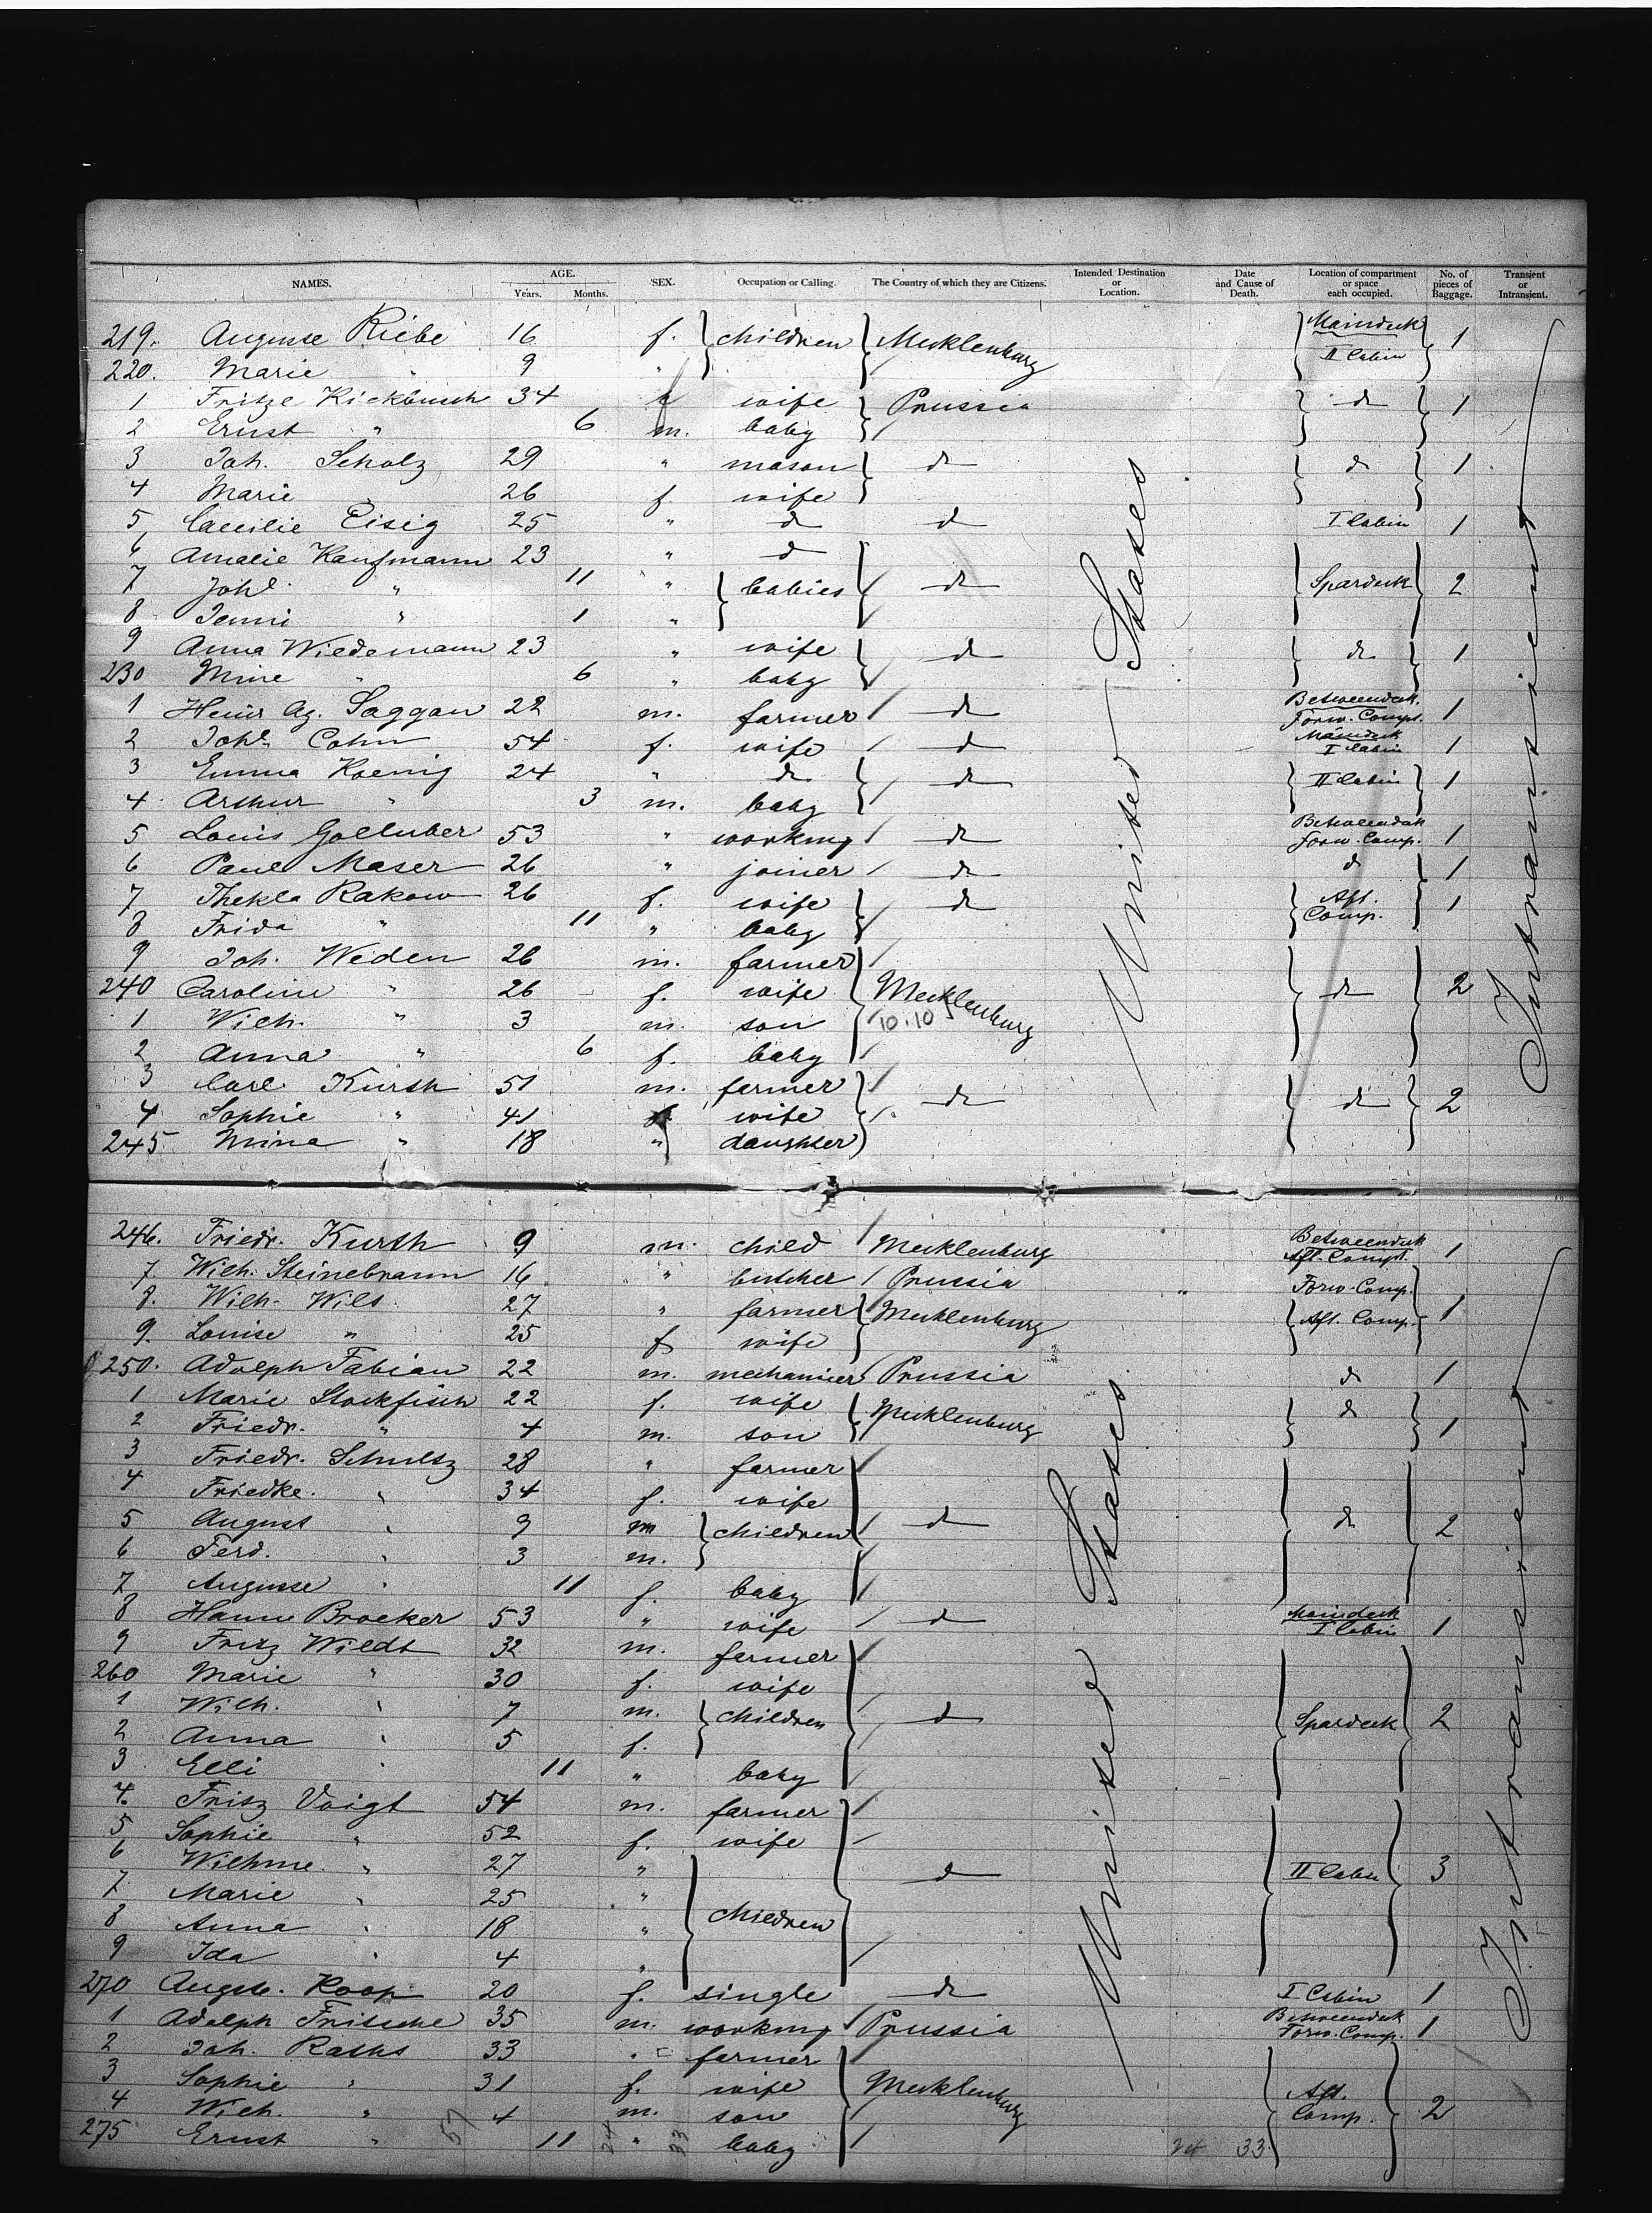 NAMES. AGE. Years. Months. SEX. Occupation or Calling. The Country of which they are Citizens. Intended Destination or Location. Date and Cause of Death. Location of compartment or space each occupied. No. of pieces of Baggage. Transient or Intransient.
219. Auguste Riebe 16 f. children Mecklenburg Maindeck II Cabin 1
220. Marie " 9 "
1 Fritze Kickbusch 34 f wife Prussia do 1
2 Ernst " 6 m. baby
3 Joh. Scholz 29 " mason do do 1
4 Marie " 26 f. wife
5 Caecilie Eisig 25 " do do I Cabin 1
6 Amalie Kaufmann 23 " do
7 Johe " 11 " babies do Spardeck 2
8 Jenni " 1 "
9 Anna Wiedemann 23 " wife do do 1
230 Mine " 6 " baby
1 Heinr Ag. Saggau 22 m. farmer do Betweendeck. Forw. Compt. 1
2 Johe Cohn 54 f. wife do Maindeck I Cabin 1
3 Emma Koenig 24 " do do II Cabin 1
4 Arthur " 3 m. baby
5 Louis Golluber 53 " workmg do Betweendeck Forw. Comp. 1
6 Paul Maser 26 " joiner do do 1
7 Thekla Rakow 26 f. wife do Aft. Comp. 1
8 Frida " 11 " baby
9 Joh. Weden 26 m. farmer
240 Caroline " 26 f. wife Mecklenburg do 2
1 Wilh. " 3 m. son 10.10
2 Anna " 6 f. baby
3 Carl Kurth 51 m. farmer do do 2
4 Sophie " 41 f. wife
245 Mina " 18 " daughter
United States
Intransient
246. Friedr. Kurth 9 m. child Mecklenburg Betweendeck Aft. Compt. 1
7 Wilh. Steinebrann 16 " butcher Prussia Forw. Comp.
8. Wilh. Wils 27 " farmer Mecklenburg Aft. Comp. 1
9. Louise " 25 f wife
250. Adolph Fabian 22 m. mechanicer Prussia do 1
1 Marie Stockfisch 22 f. wife Mecklenburg do 1
2 Friedr. " 4 m. son
3 Friedr. Schultz 28 " farmer
4 Friedke. " 34 f. wife
5 August " 9 m children do do 2
6 Ferd. " 3 m.
7 Auguste " 11 f. baby
8 Hanne Broeker 53 " wife do Maindeck I Cabin 1
9 Fritz Wildt 32 m. farmer
260 Marie " 30 f. wife
1 Wilh. " 7 m. children do Spardeck 2
2 Anna " 5 f.
3 Elli " 11 " baby
4. Fritz Voigt 54 m. farmer
5 Sophie " 52 f. wife
6 Wilhme. " 27 " do II Cabin 3
7 Marie " 25 " children
8 Anna " 18 "
9 Ida " 4 "
270 Augste. Koop 20 f. single do I Cabin 1
1 Adolph Fritsche 35 m. workmg Prussia Betweendeck Forw. Comp. 1
2 Joh. Raths 33 " farmer
3 Sophie " 31 f. wife Mecklenburg Aft. Comp. 2
4 Wilh. " 4 m. son
275 Ernst " 11 " baby
57 24 33 24 33
United States
Intransient